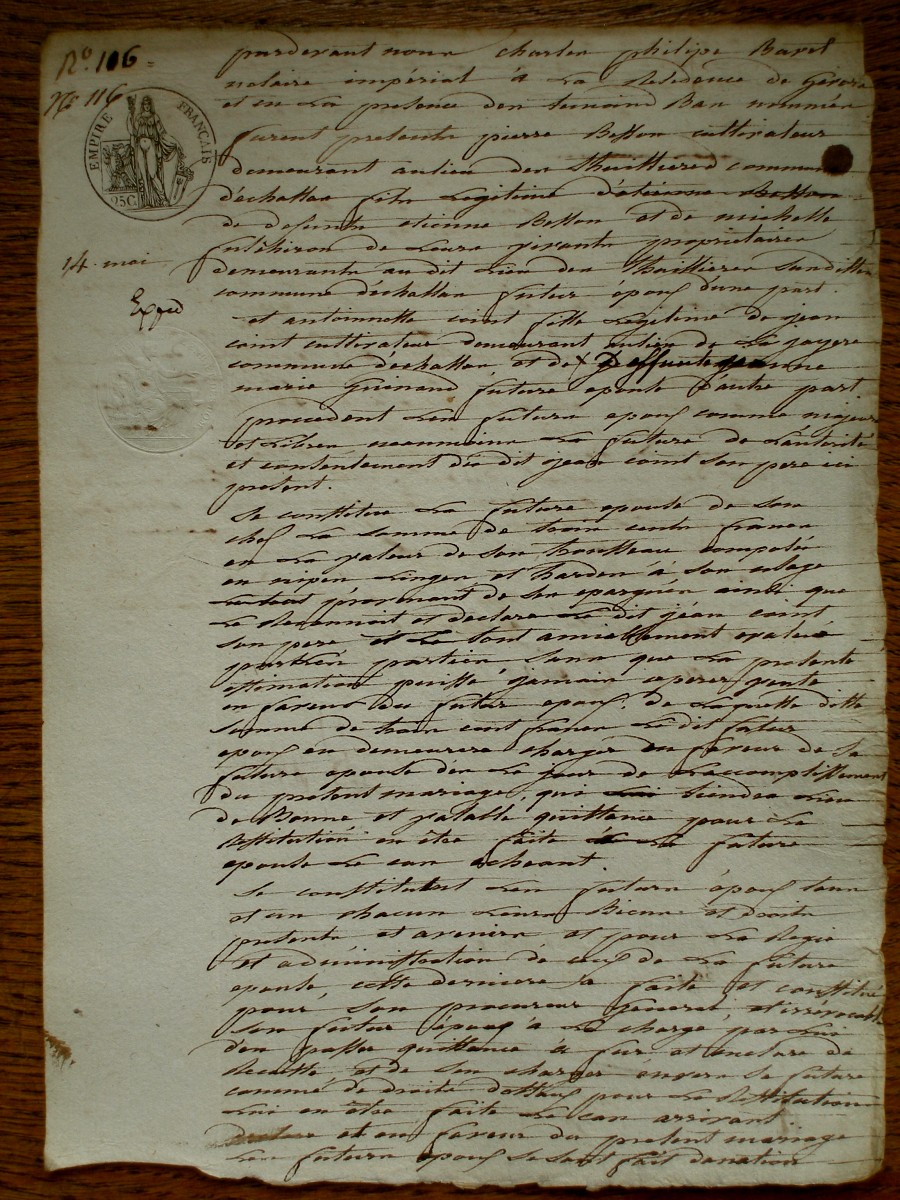 N.o 106
N.o 116
EMPIRE FRANÇAIS
25C
14. mai
Exped
pardevant nous charles philipe Baret
notaire impérial à La Residence de
et en La presence des temoins Bas nommés
furent presents pierre Besson cultivateur
demeurant au lieu des Thuillieres commune
d'échallas fils Legitime d'étienne Besson
de defunt etienne Besson et de michelle
de Leurs vivants proprietaires
demeurants au dit Lieu des Thuillieres susditte
commune d'échallas futur époux d'une part.
et antoinette coint fille Legitime de jean
coint cultivateur demeurant au lieu de La
commune d'échallas, et de Deffunte
marie Guinand future epouse d'autre part
procedent Les futurs epoux comme majeurs
et Libres neanmoins La future de L'autorité
et consentement du dit jean coint son pere ici
present.
Se constitue La future epouse de son
chef La somme de trois cents francs
en La valeur de son trousseau composée
en nipes Linges et hardes à son usage
Le tout provenant de ses epargnes ainsi que
Le Reconnoit et declare Le dit jean coint
son pere et Le sont amiablement evalué
par Les parties, sans que La presente
estimation puisse jamais operer vente
en faveur du futur epoux de Laquelle ditte
somme de trois cent francs Le dit futur
epoux en demeurera charger en faveur de Sa
future epouse dès Le jour de L'accomplissement
du present mariage, qui Lui tiendra Lieu
de Bonne et valable quittance pour La
Restitution en être faite à La future
epouse Le cas echeant.
Se constituent Les futurs époux tous
et un chacun Leurs Biens et droits
presents et avenirs et pour La Regie
et administration de ceux de La future
epouse cette derniere a faite et constitué
pour son procureur General et irrévocable
son futur époux à La charge par Lui
d'en passer quittance à fur et mesure de
Recette et de s'en charger envers Sa future
comme de droits dotaux pour La Restitution
Lui en être faite Le cas arrivant.
et en faveur du present mariage
Les futurs epoux se sont fait donation